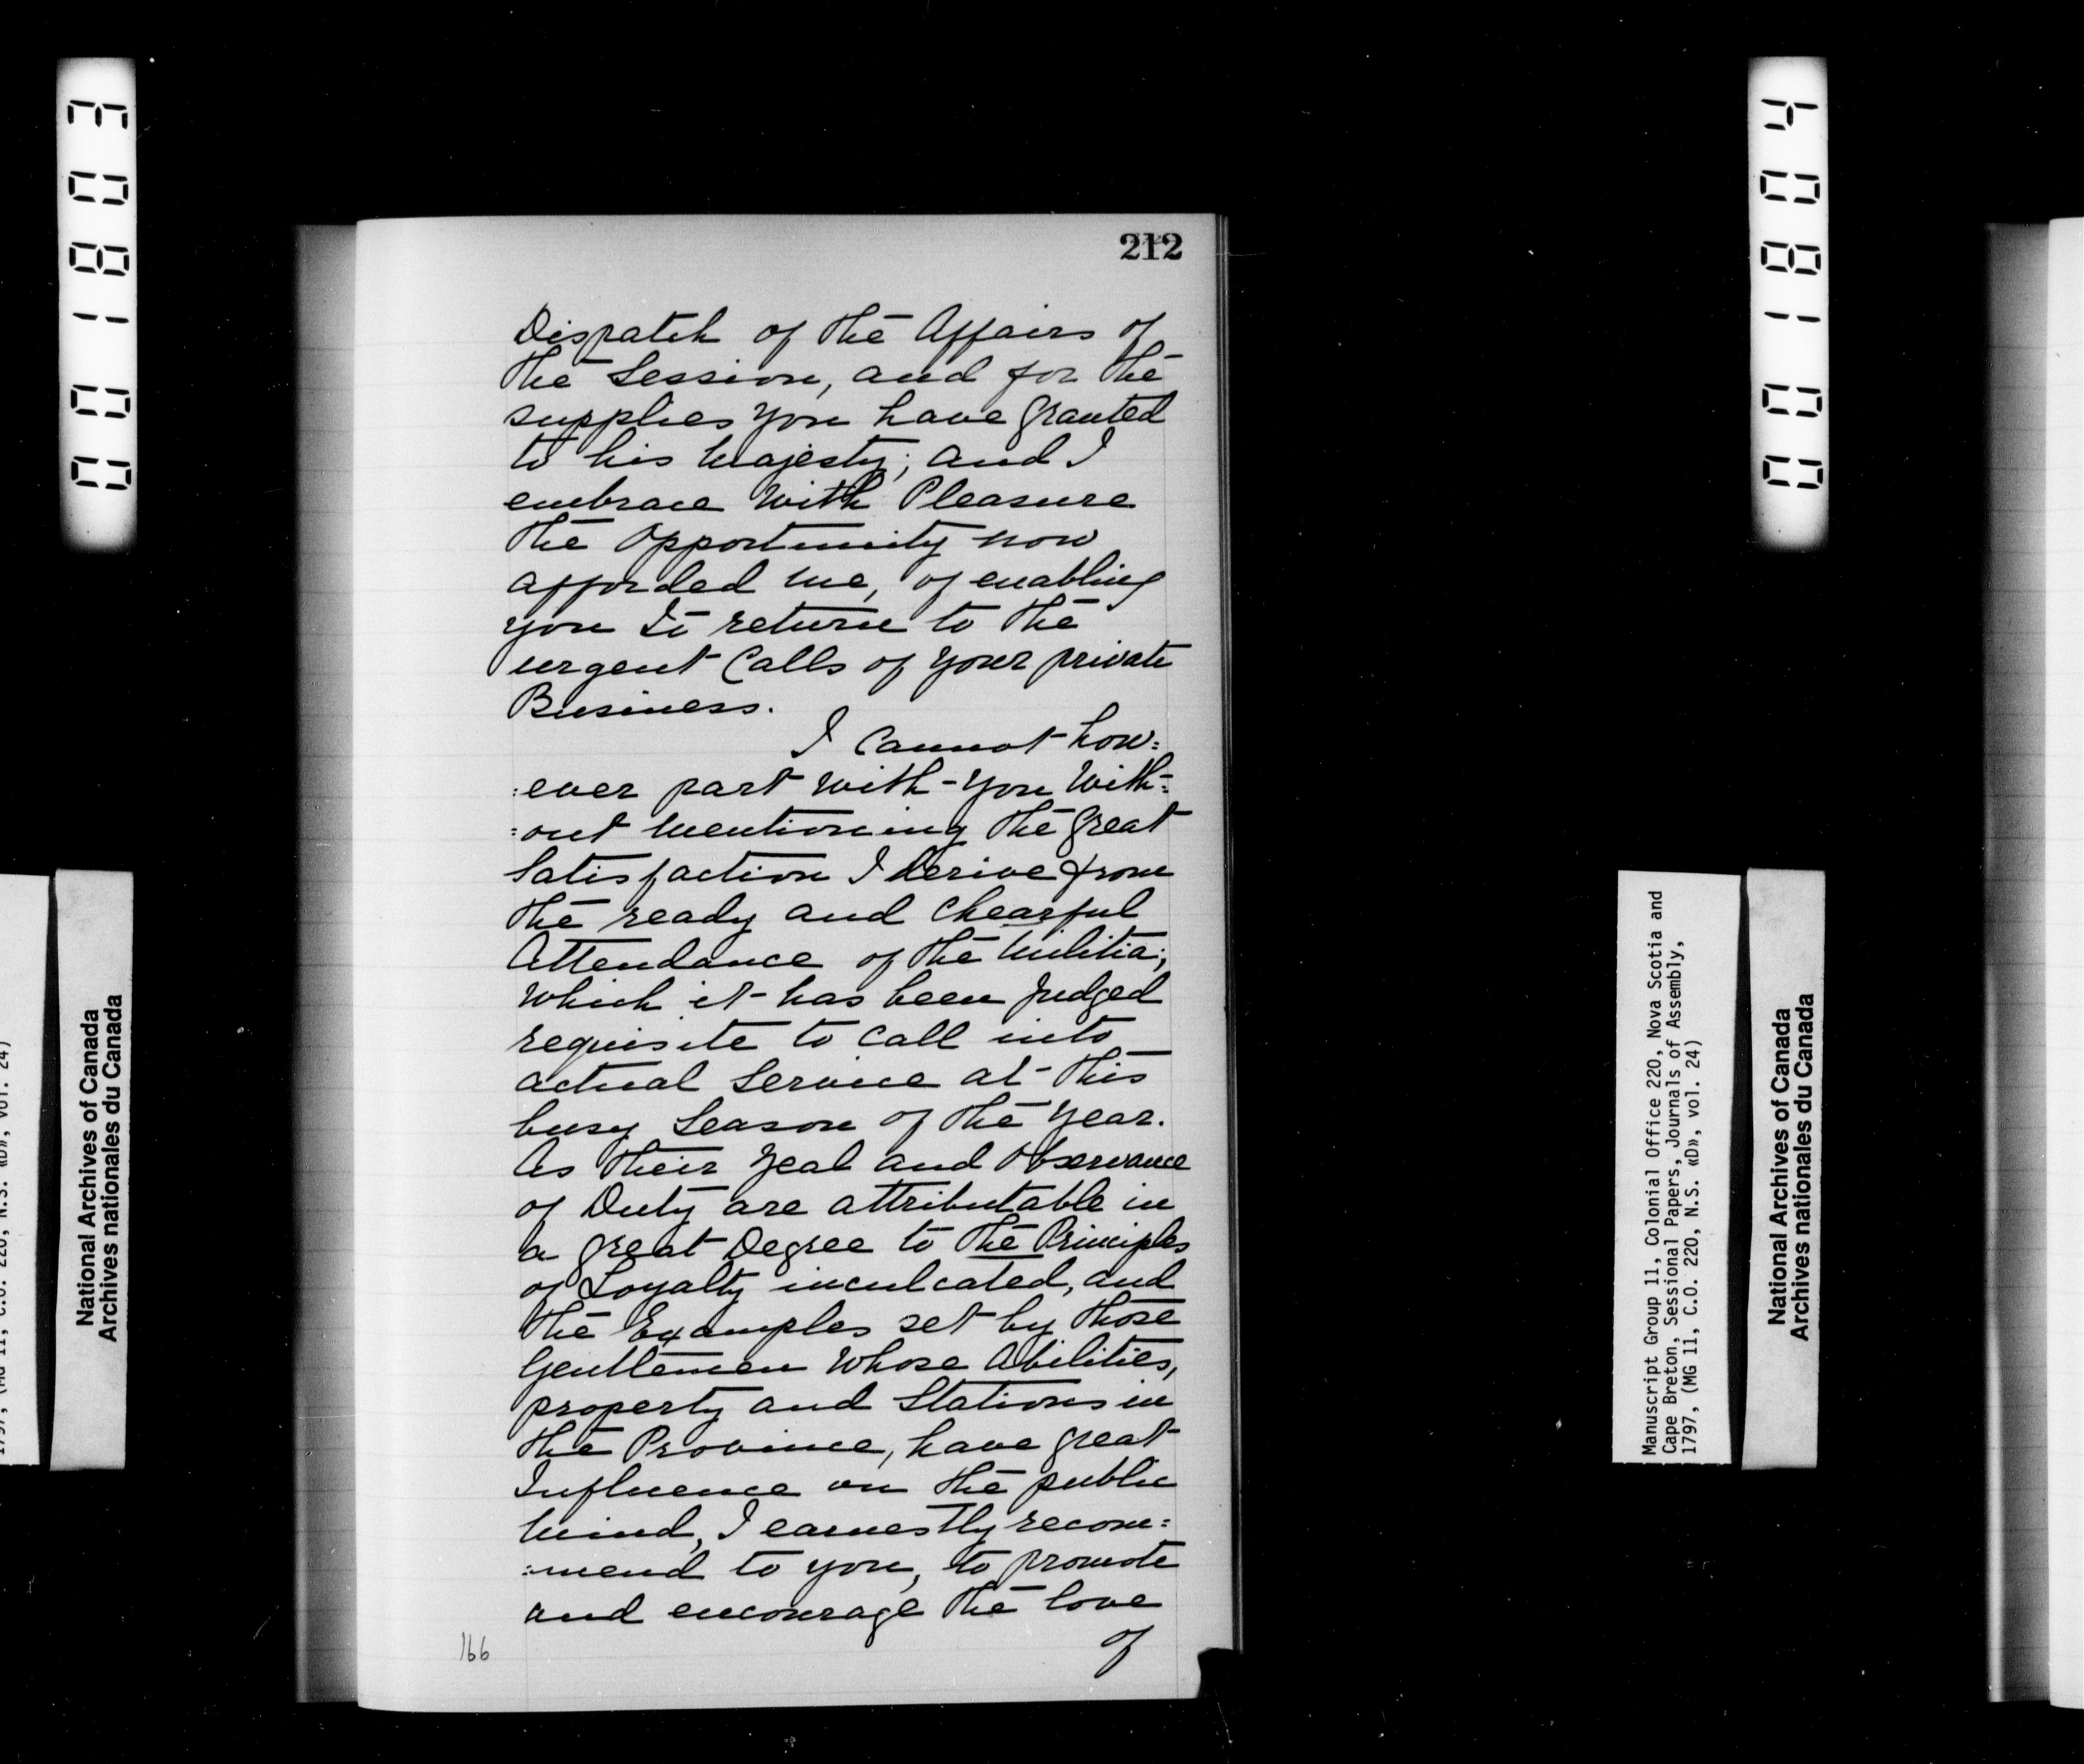 001803
001804
212
Dispatch of the Affairs of
the Session, and for the
supplies you have granted
to his Majesty; and I
embrace with Pleasure
the Opportunity now
afforded me, of enabling
you to return to the
urgent Calls of your private
Business.
I cannot how=
=ever part with you With=
=out mentioning the great
Satisfaction I derive from
the ready and chearful
Attendance of the Militia;
which it has been judged
requisite to call into
actual Service at this
busy Season of the year.
As their zeal and Observance
of Duty are attributable in
a great Degree to the Principles
of Loyalty inculcated, and
the Examples set by those
Gentlemen whose Abilities,
property and Stations in
the Province, have great
Influence on the public
Mind, I earnestly recom=
=mend to you, to promote
and encourage the love
of
166
National Archives of Canada
Archives nationales du Canada
Manuscript Group 11, Colonial Office 220, Nova Scotia and
Cape Breton, Sessional Papers, Journals of Assembly,
1797, (MG 11, C.O. 220, N.S. «D», vol. 24)
National Archives of Canada
Archives nationales du Canada